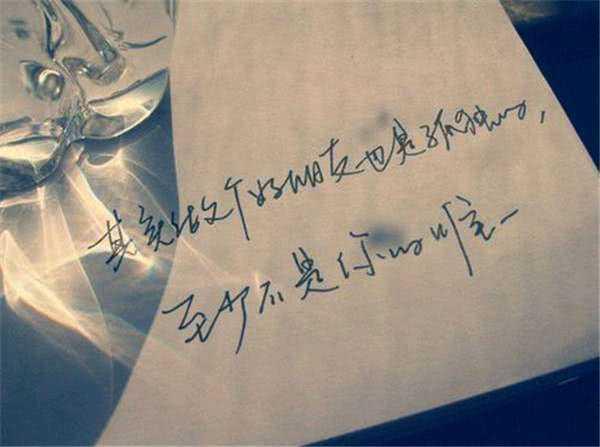 其实做个好朋友也是孤独的，
至今不是你的唯一